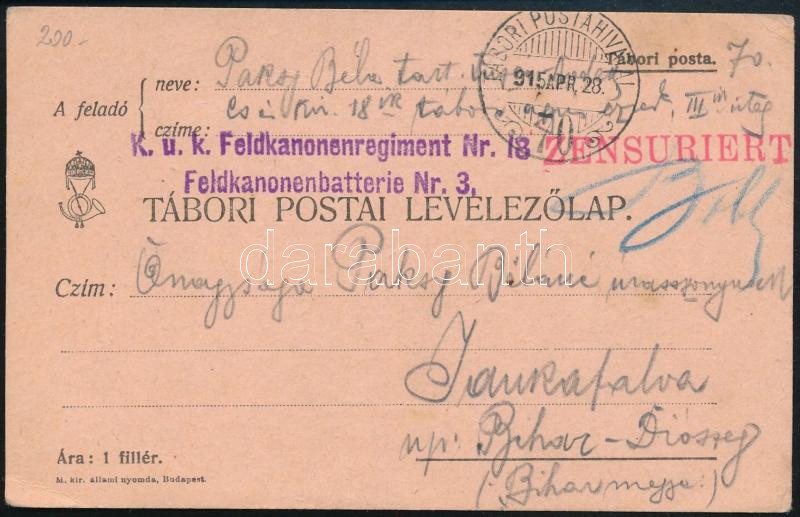 200.-
TÁBORI POSTAHIVATAL
915 APR. 28.
70
Tábori posta. 70.
A feladó
neve: Paksy Béla tart.
czíme: Cs és kir. 18 ik tábori ezred, III ik üteg
K. u. k. Feldkanonenregiment Nr. 18
ZENSURIERT
Feldkanonenbatterie Nr. 3.
TÁBORI POSTAI LEVELEZŐLAP.
darabanth.com
Czím: Őnagysága Paksy Béláné urasszonynak
Jankafalva
up: Bihar-Diószeg
(Biharmegye.)
Ára: 1 fillér.
M. kir. állami nyomda, Budapest.